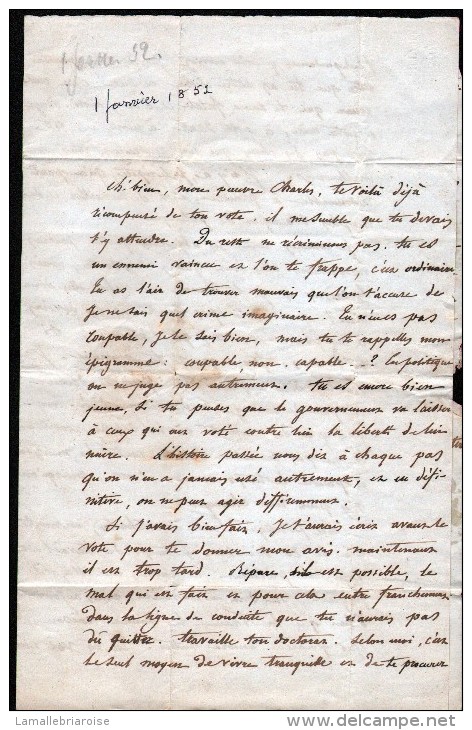 1 janvier 52.
1 Janvier 1852
Eh bien, mon pauvre Charles, te voilà déjà
récompensé de ton vote. il me semble que tu devais
t'y attendre. Du reste ne récriminons pas. tu es
un ennemi vaincu et l'on te frappe, c'est ordinaire.
Tu as l'air de trouver mauvais que l'on t'accuse de
je ne sais quel crime imaginaire. Tu n'es pas
coupable, je le sais bien, mais tu te rappelles mon
épigramme: coupable, non. capable...? En politique
on ne juge pas autrement. tu es encore bien
jeune, si tu penses que le gouvernement va laisser
à ceux qui ont voté contre lui la liberté de lui
nuire. L'histoire passée nous dit à chaque pas
qu'on n'en a jamais usé autrement, et en défi-
nitive, on ne peut agir différemment.
Si j'avais bien fait, je t'aurais écrit avant le
vote pour te donner mon avis. maintenant
il est trop tard. Répare, s'il est possible, le
mal qui est fait et pour cela entre franchement
dans la ligne de conduite que tu n'aurais pas
dû quitter. travaille ton doctorat. selon moi, c'est
le seul moyen de vivre tranquille et de te procurer
Lamallebriaroise
delcampe.net